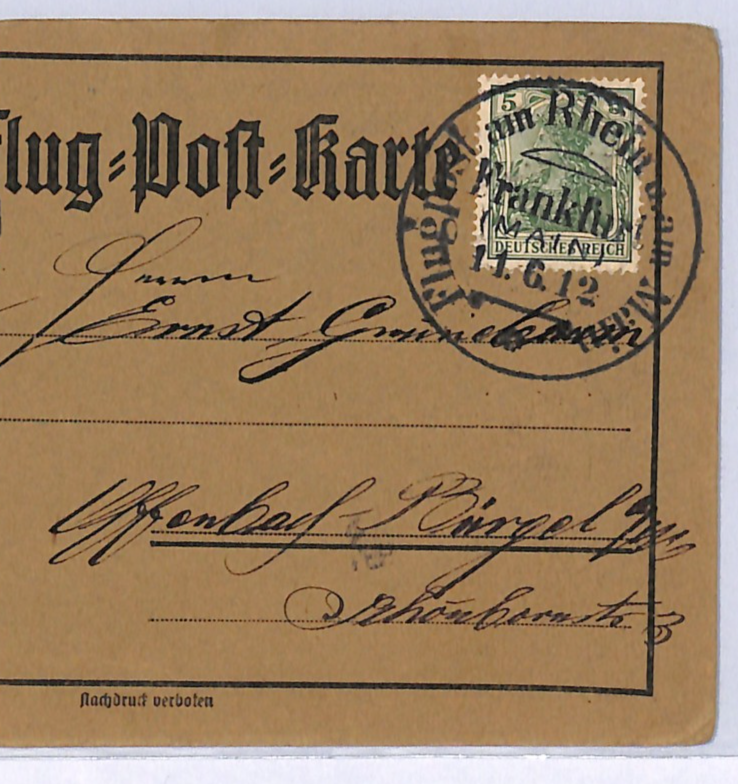 Flug-Post-Karte
5 5
DEUTSCHES REICH
Flugpost am Rhein u. am Main
Frankfurt
(MAIN)
11.6.12
Herrn
Ernst
Offenbach-Bürgel
Schönbornstr. 3
Nachdruck verboten